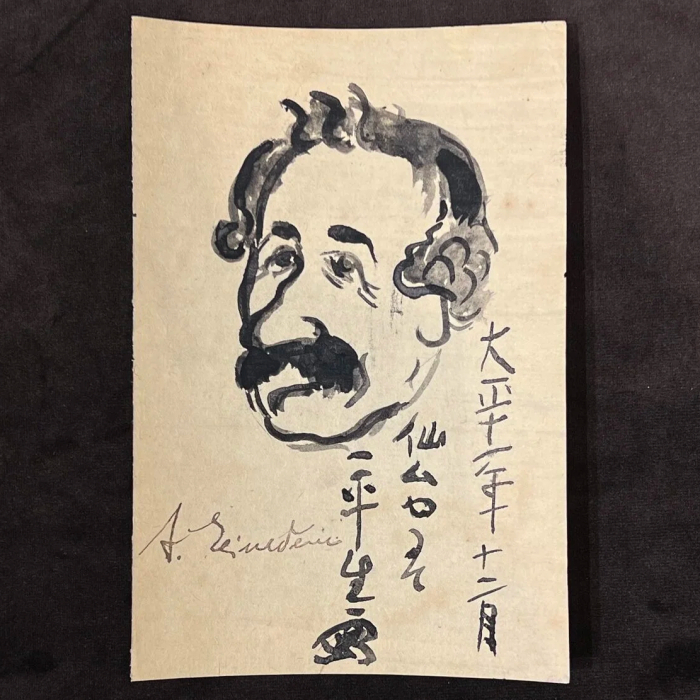 大正十一年十二月
仙台
一平生画
A. Einstein